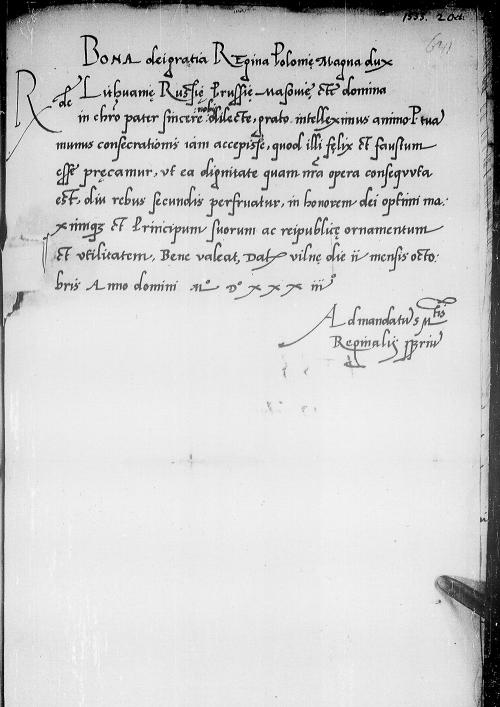 1533. 2 Oct.
641
BONA dei gratia REgina Polonię Magna dux
Lithuanię Russię Prussię Masovię etc domina
Rde in chro pater sincere nobis dilecte, grato intelleximus animo P tua
munus consecrationis iam accepisse, quod illi felix et faustum
esse pręcamur, ut ea dignitate quam nra opera consequuta
est, diu rebus secundis perfruatur, in honorem dei optimi ma:
ximiqz et Principum suorum ac reipublicę ornamentum
et utilitatem. Bene valeat, Dat vilnę die ii mensis octo:
bris Anno domini Mº Dº xxx iiiº
Ad mandatu s Mtis
Reginalis